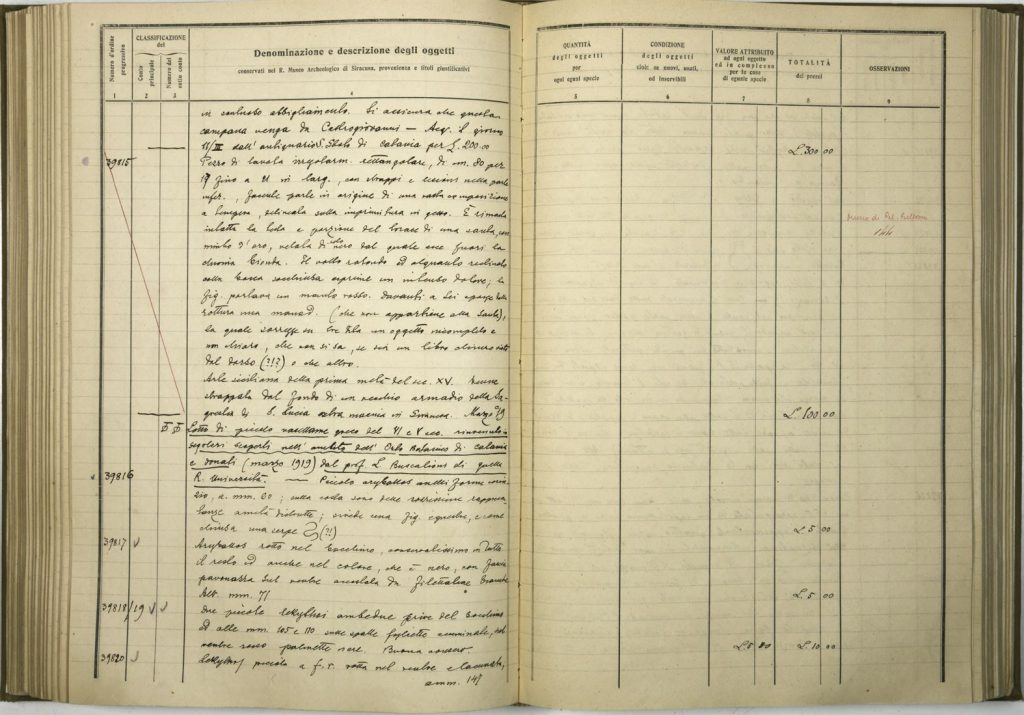 Numero d'ordine progressivo
CLASSIFICAZIONE
del
Conto principale
Numero del sotto conto
Denominazione e descrizione degli oggetti
conservati nel R. Museo Archeologico di Siracusa, provenienza e titoli giustificativi
QUANTITÀ
degli oggetti
per
ogni ogni specie
CONDIZIONE
degli oggetti
cioè: se nuovi, usati,
ed inservibili
VALORE ATTRIBUITO
ad ogni oggetto
ed in complesso
per le cose
di eguale specie
TOTALITÀ
dei prezzi
OSSERVAZIONI
1 2 3 4 5 6 7 8 9
abbigliamento. Si assicura che questa
campana venga da Castrogiovanni — Acq. il giorno
18/III dall' antiquario S. di Catania per £. 200.00
L. 300 00
39815
Pezzo di tavola irregolarm. rettangolare, di m. 80 per
19 fino a 21 in larg., con strappi e lesioni nella parte
infer., faceva parte in origine di una vasta composizione
a tempera, delineata sulla imprimitura in gesso. È rimasta
intatta la testa e porzione del torace di una santa, con
nimbo d'oro, velata di nero dal quale esce fuori la
chioma bionda. Il volto rotondo ed alquanto reclinato
colla bocca socchiusa esprime un intenso dolore; la
fig. portava un manto rosso. Davanti a lei sporge dalla
rottura una mano d. (che non appartiene alla santa),
la quale sorregge su tre dita un oggetto incompleto e
non chiaro, che non si sa, se sia un libro chiuso visto
dal dorso (?!?) o che altro.
Museo di Pal. Bellomo
144
Arte siciliana della prima metà del sec. XV. Venne
strappata dal fondo di un vecchio armadio della Sa-
grestia di S. Lucia extra moenia in Siracusa. Marzo 19
L. 100 00
Lotto di piccolo vasellame greco del VI e V sec. rinvenuto in
sepolcri scoperti nell' ambito dell' Orto Botanico di Catania
e donati (marzo 1919) dal prof. L. Buscalioni di quella
39816
R. Università. — Piccolo aryballos
, a. mm. 60; sulla sono delle rappresen-
tanze a metà distrutte; una fig. equestre, e come
una serpe (?!)
L. 5 00
39817
Aryballos rotto nel bocchino, conservatissimo in tutto
il resto ed anche nel colore, che è nero, con fascia
paonazza sul ventre da filettature bianche
Alt. mm. 71
L. 5 00
39818/19
Due piccole lekythoi ambedue prive del bocchino
ed alte mm. 105 e 110 sulle spalle fogliette, sul
ventre rosso palmette nere. Buona conserv.
L. 5 00
L. 10 00
39820
Lekythos piccola a f. n. rotta nel ventre e lacunata,
a mm. 147